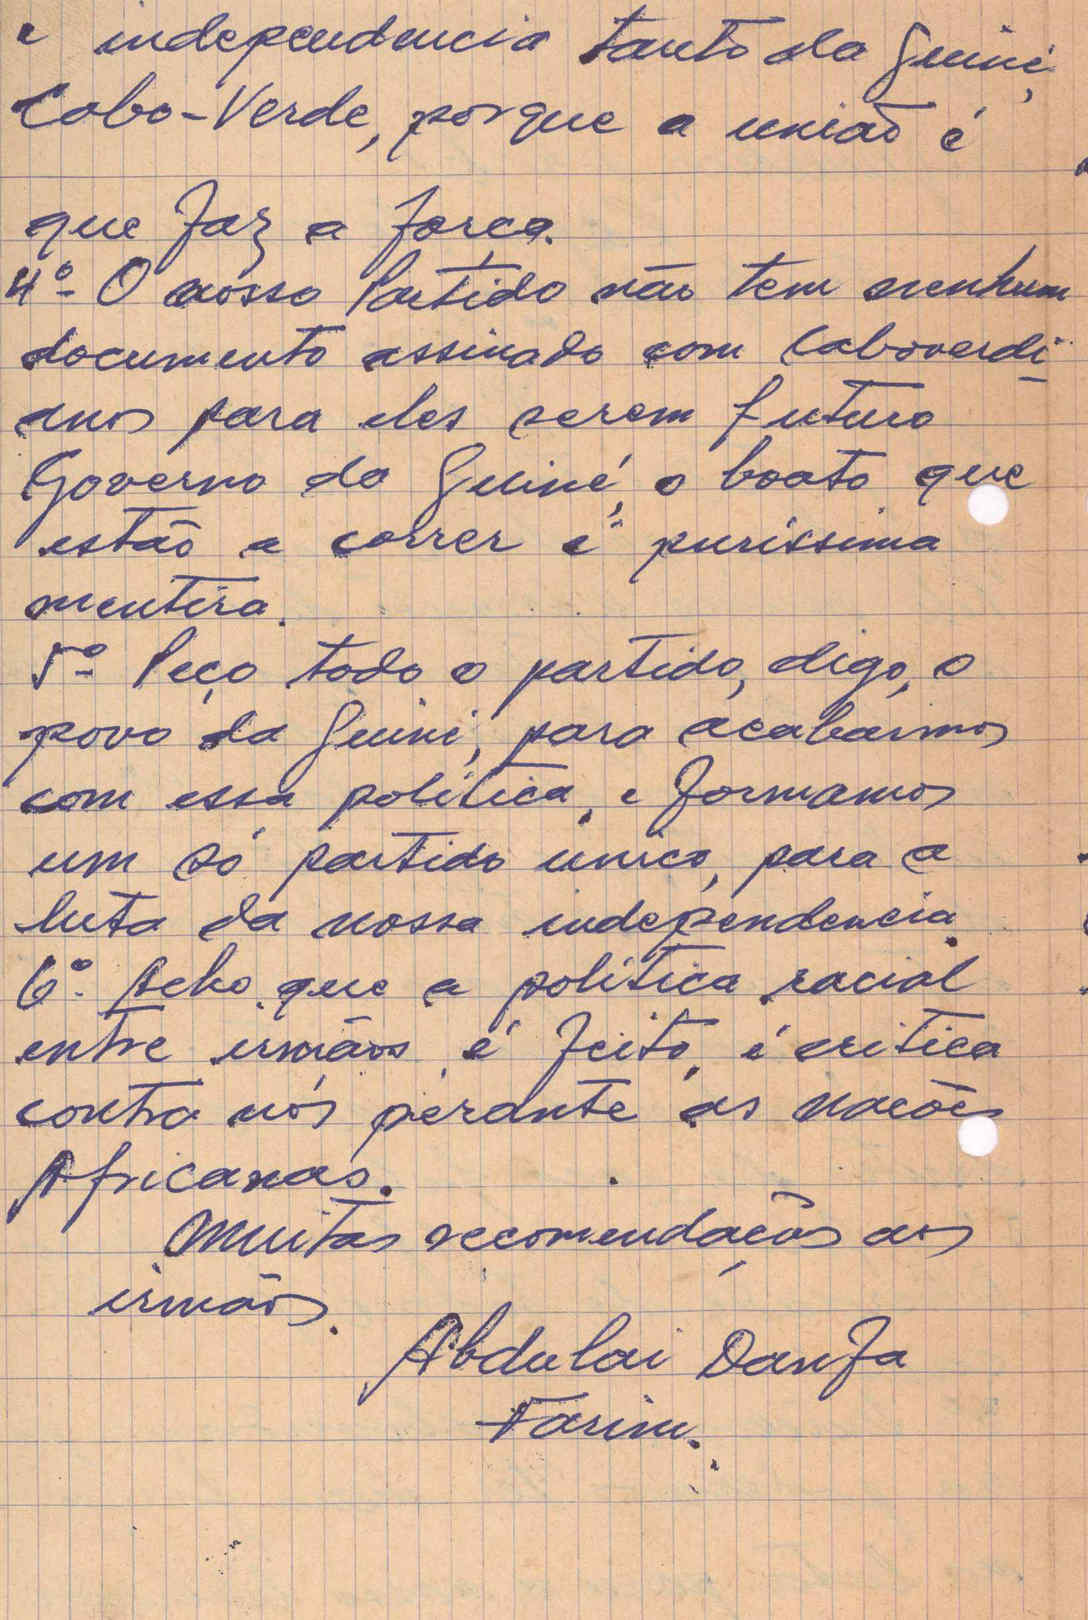 e independencia tanto da Guiné,
Cabo-Verde, porque a união é
que faz a força.
4º- O nosso Partido não tem nenhum
documento assinado com caboverdi_
anos para eles serem futuro
Governo da Guiné, o boato que
estão a correr é purissima
mentira.
5º- Peço todo o partido, digo, o
povo da Guiné, para acabarmos
com essa politica, e formamos
um só partido unico, para a
luta da nossa independencia.
6º. Acho que a politica racial
entre irmãos é feito, é critica
contra nós perante as nações
Africanas.
Muitas recomendações aos
irmãos.
Abdulai Danfa
Farim.